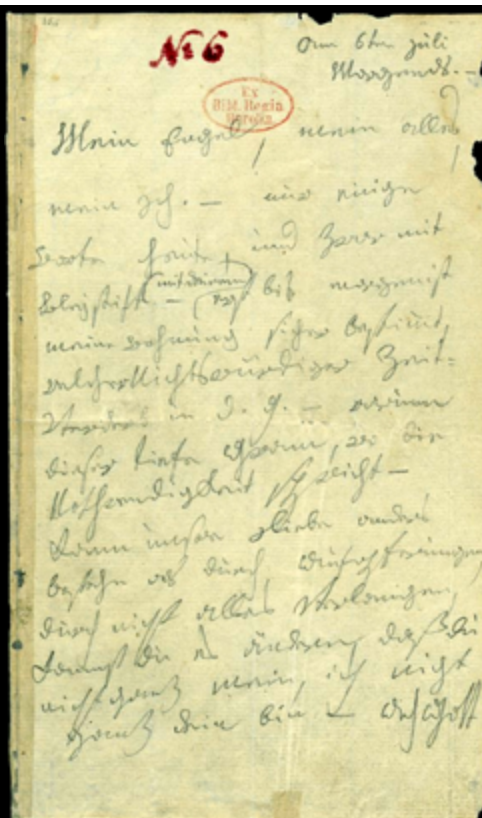 No 6
am 6ten Juli
Morgends. —
Ex
Bibl. Regia
Berolin
Mein Engel, mein alles
mein Ich. — nur einige
Worte heute, und zwar mit
Bleistift — (mit deinem) erst bis morgen ist
meine Wohnung sicher bestimmt,
welcher Nichtswürdiger Zeit-
Verderb in d. g. — warum
dieser tiefe Gram, wo die
Nothwendigkeit spricht —
Kann unsre Liebe anders
bestehn als durch Aufopferungen,
durch nicht alles verlangen,
kannst du es ändern, daß du
nicht ganz mein, ich nicht
ganz dein bin — Ach Gott